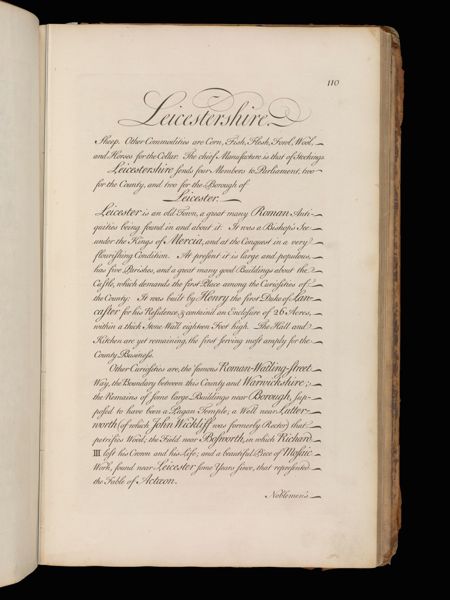 110
Leicestershire.
Sheep. Other Commodities are Corn, Fish, Flesh, Fowl, Wool,
and Horses for the Collar. The chief Manufacture is that of Stockings.
Leicestershire sends four Members to Parliament, two
for the County, and two for the Borough of
Leicester.
Leicester is an old Town, a great many Roman Anti-
quities being found in and about it. It was a Bishop's See
under the Kings of Mercia, and at the Conquest in a very
flourishing Condition. At present it is large and populous,
has five Parishes, and a great many good Buildings about the
Castle, which demands the first Place among the Curiosities of
the County. It was built by Henry the first Duke of Lan-
caster for his Residence, & contained an Enclosure of 26 Acres,
within a thick Stone Wall eighteen Foot high. The Hall and
Kitchen are yet remaining, the first serving most amply for the
County Business.
Other Curiosities are, the famous Roman-Watling-street
Way, the Boundary between this County and Warwickshire;
the Remains of some large Buildings near Borough, sup-
posed to have been a Pagan Temple; a Well near Lutter-
worth (of which John Wickliff was formerly Rector) that
petrifies Wood; the Field near Bosworth, in which Richard
III lost his Crown and his Life; and a beautiful Piece of Mosaic
Work, found near Leicester some Years since, that represented
the Fable of Actæon.
Noblemen's